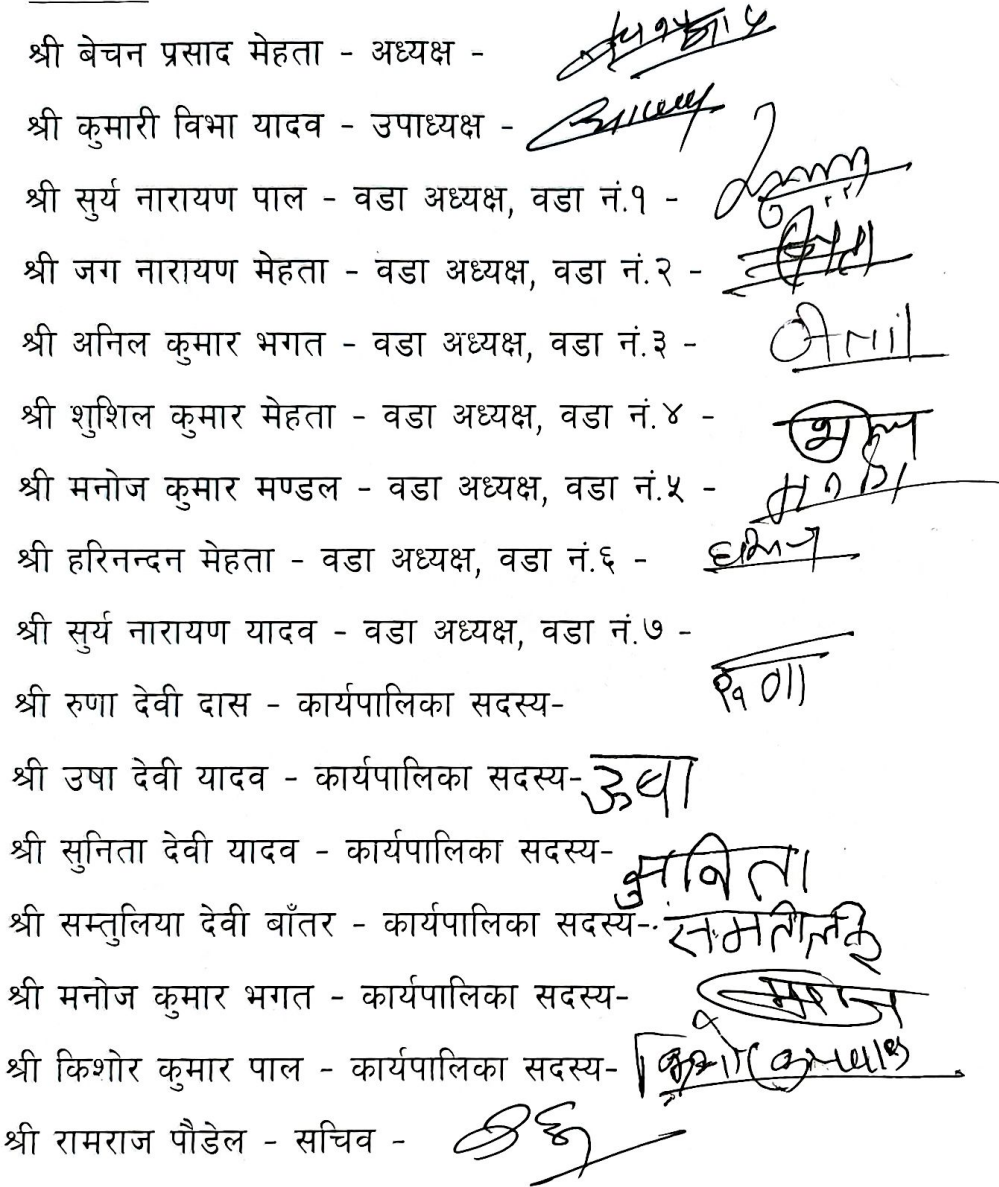 श्री बेचन प्रसाद मेहता - अध्यक्ष -
श्री कुमारी विभा यादव - उपाध्यक्ष -
श्री सुर्य नारायण पाल - वडा अध्यक्ष, वडा नं.१ -
श्री जग नारायण मेहता - वडा अध्यक्ष, वडा नं.२ -
श्री अनिल कुमार भगत - वडा अध्यक्ष, वडा नं.३ -
श्री शुशिल कुमार मेहता - वडा अध्यक्ष, वडा नं.४ -
श्री मनोज कुमार मण्डल - वडा अध्यक्ष, वडा नं.५ -
श्री हरिनन्दन मेहता - वडा अध्यक्ष, वडा नं.६ -
श्री सुर्य नारायण यादव - वडा अध्यक्ष, वडा नं.७ -
श्री रुणा देवी दास - कार्यपालिका सदस्य-
श्री उषा देवी यादव - कार्यपालिका सदस्य- ऊषा
श्री सुनिता देवी यादव - कार्यपालिका सदस्य- सुनिता
श्री सम्तुलिया देवी बाँतर - कार्यपालिका सदस्य-
श्री मनोज कुमार भगत - कार्यपालिका सदस्य-
श्री किशोर कुमार पाल - कार्यपालिका सदस्य-
श्री रामराज पौडेल - सचिव -